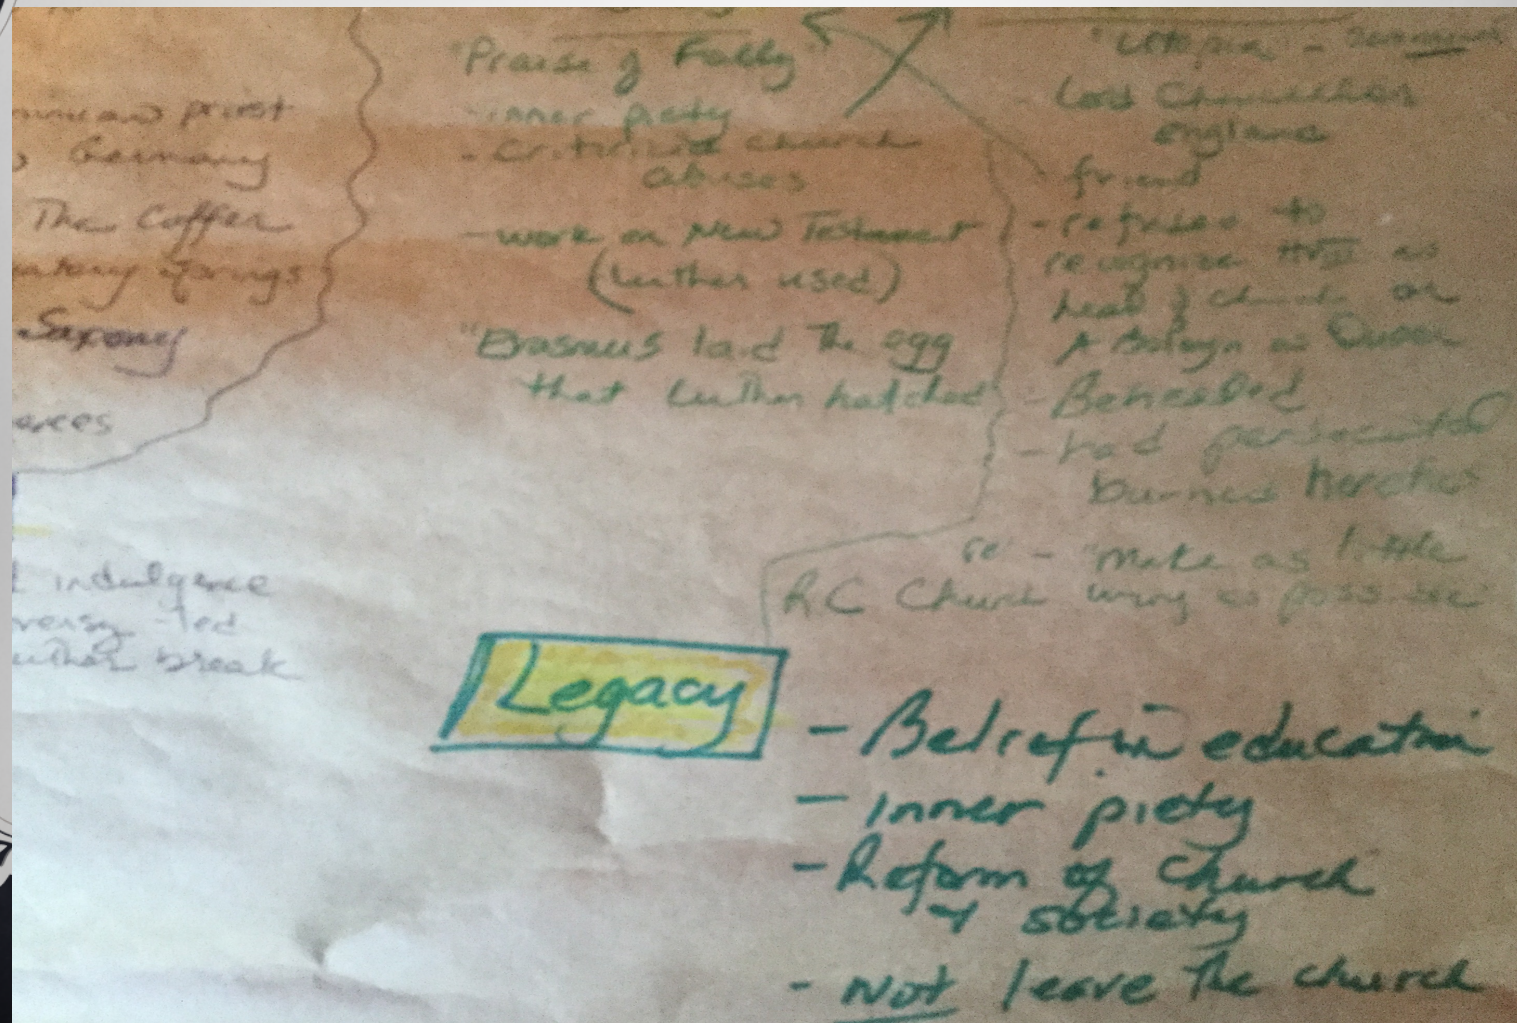 priest
Germany
The Coffer
springs
Saxony
indulgence
led
break
"Praise of Folly"
- inner piety
- criticized church
abuses
- work on New Testament
(Luther used)
"Erasmus laid the egg
that Luther hatched
"Utopia" -
Lord Chancellor
england
friend
- refused to
recognize HVIII as
head of church or
A Boleyn as Queen
- Beheaded
- had persecuted
burned heretics
re - "make as little
RC Church wrong as possible
Legacy
- Belief in education
- Inner piety
- Reform of Church
+ society
- Not leave the church